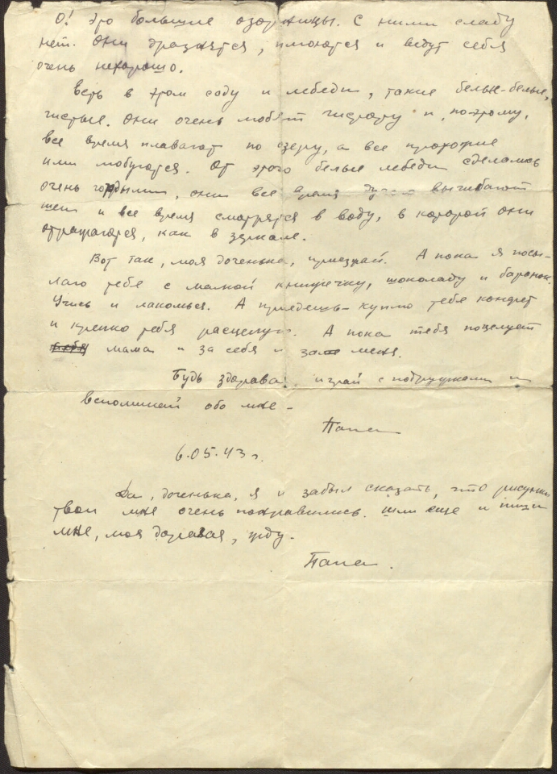 О! Это большие озорницы. С ними сладу
нет. Они дразнятся, плюются и ведут себя
очень нехорошо.
Есть в этом саду и лебеди, такие белые-белые,
чистые. Они очень любят чистоту и, поэтому,
все время плавают по озеру, а все прохожие
ими любуются. От этого белые лебеди сделались
очень гордыми, они все время выгибают
шеи и все время смотрятся в воду, в которой они
отражаются, как в зеркале.
Вот так, моя доченька, приезжай. А пока я посы-
лаю тебе с мамой книжечку, шоколаду и баранок.
Учись и лакомься. А приедешь - куплю тебе конфет
и крепко тебя расцелую. А пока тебя поцелует
мама и за себя и за меня.
Будь здорова, играй с подружками и
вспоминай обо мне -
Папа
6.05.43 г.
Да, доченька, я и забыл сказать, что рисунки
твои мне очень понравились. Шли еще и пиши
мне, моя дорогая, жду.
Папа.